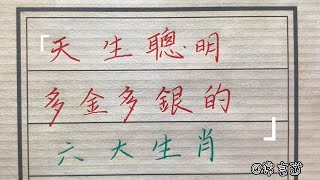 「天生聰明
多金多銀的
六大生肖」